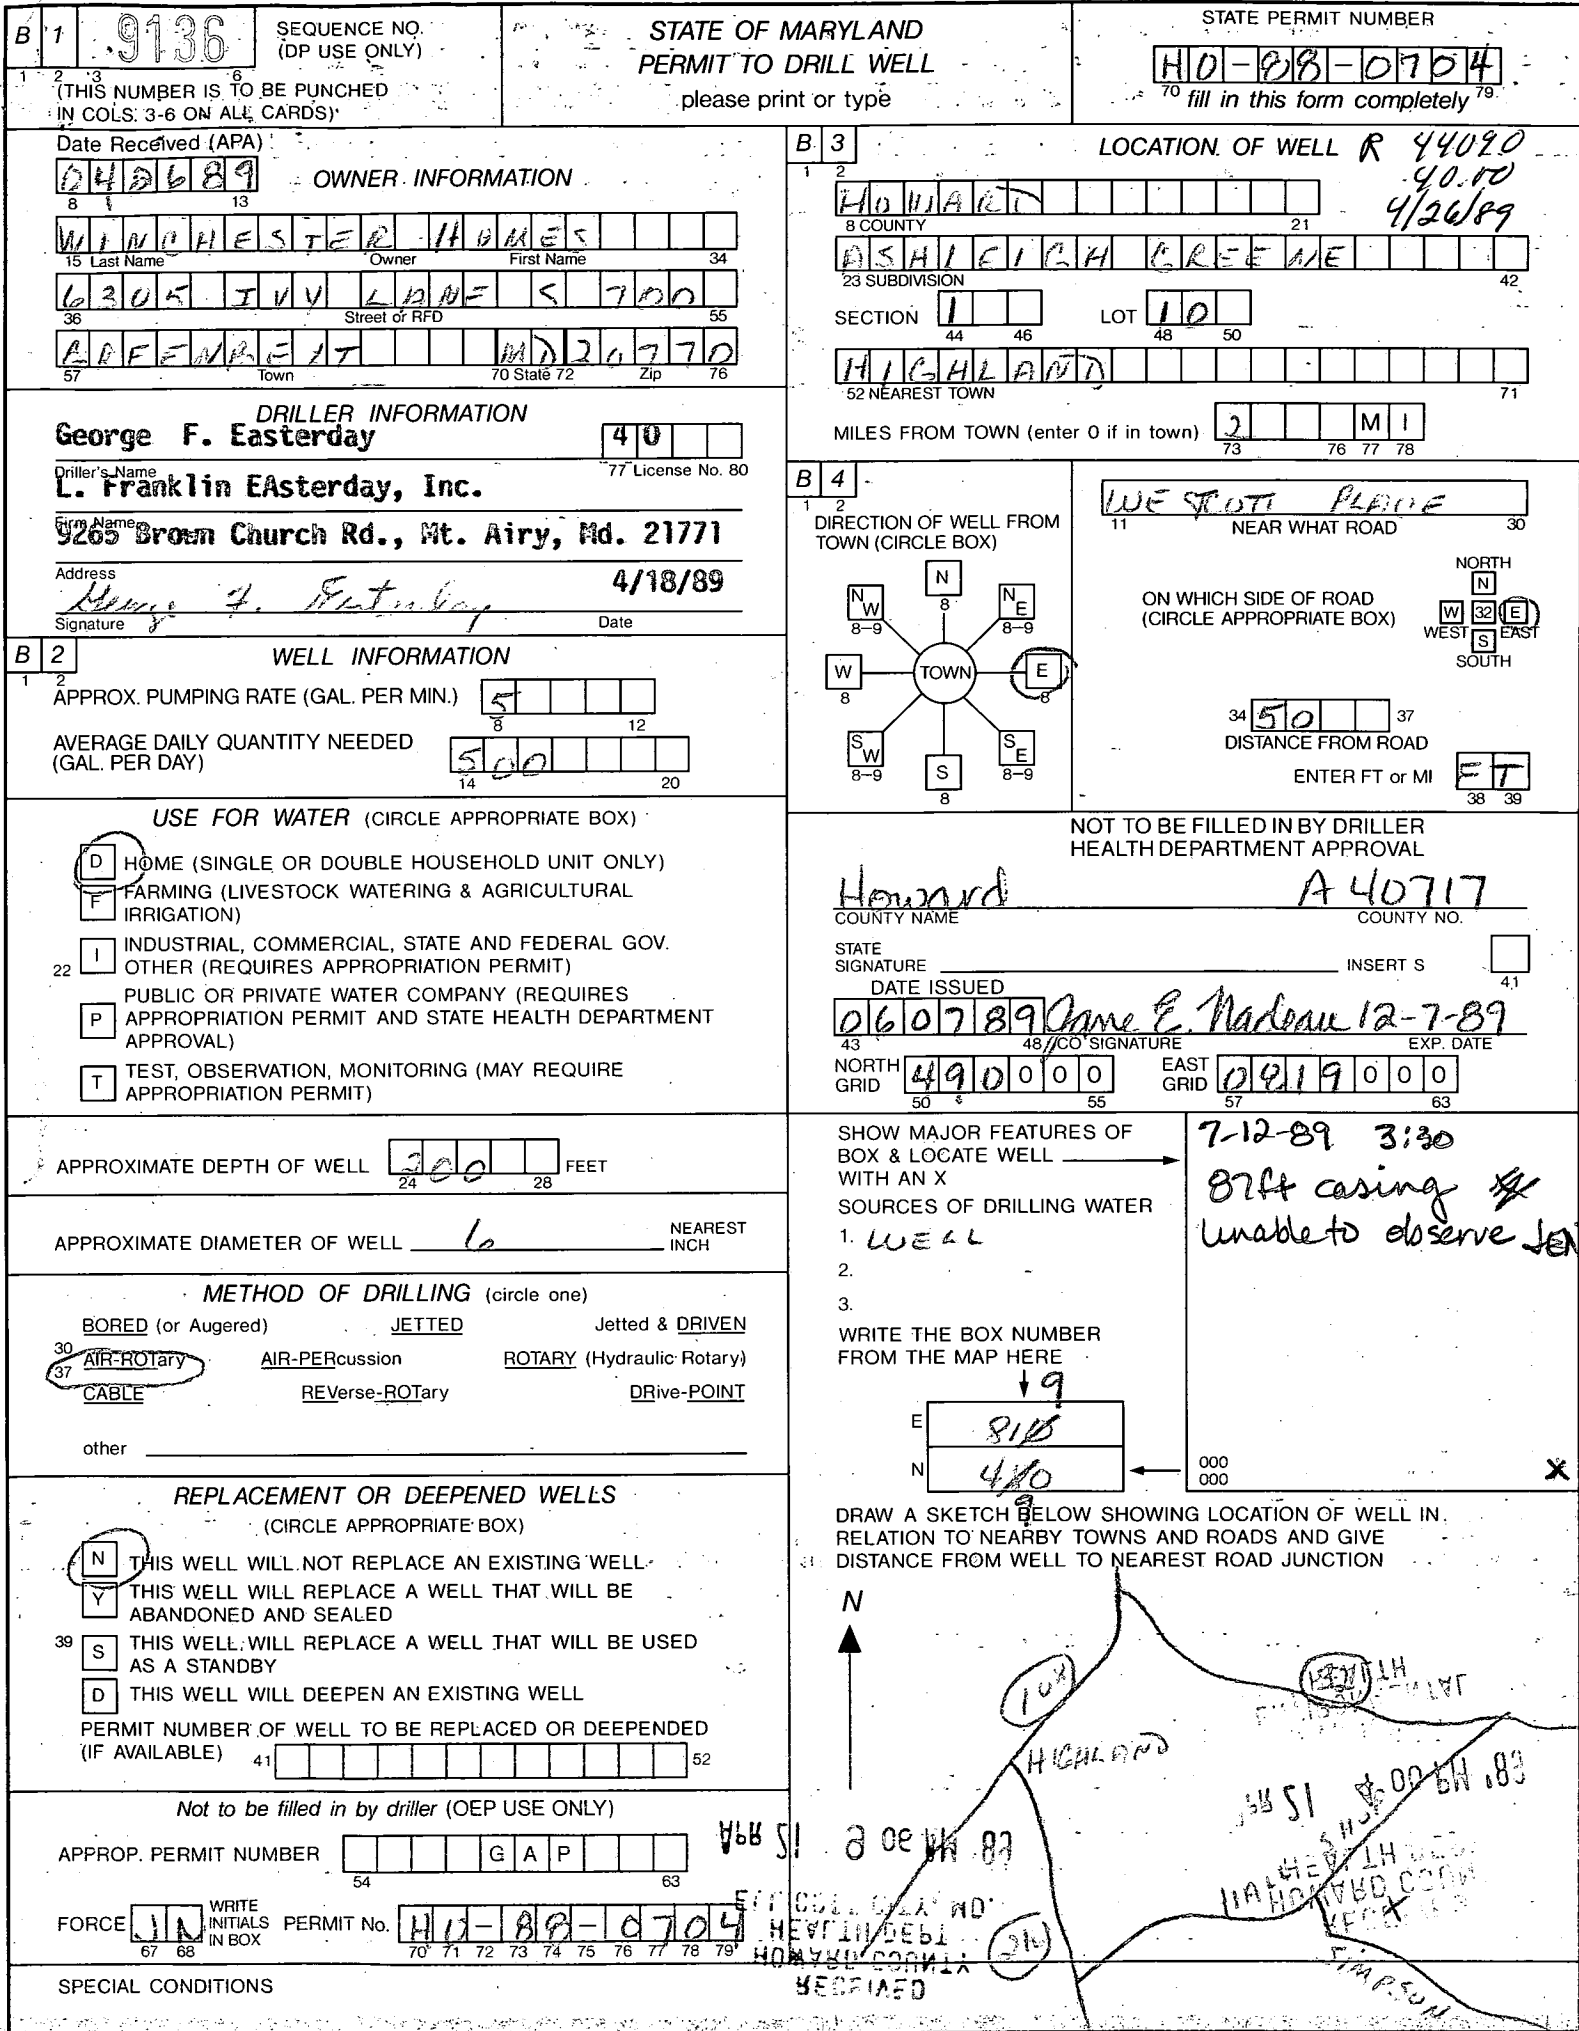 B 1 9136 SEQUENCE NO. (DP USE ONLY)
1 2 3 6
(THIS NUMBER IS TO BE PUNCHED
IN COLS. 3-6 ON ALL CARDS)
STATE OF MARYLAND
PERMIT TO DRILL WELL
please print or type
STATE PERMIT NUMBER
HO-88-0704
70 fill in this form completely 79
Date Received (APA)
042689
8 13
OWNER INFORMATION
WINCHESTER HOMES
15 Last Name Owner First Name 34
6305 IVY LANE S 700
36 Street or RFD 55
MD 20770
57 Town 70 State 72 Zip 76
DRILLER INFORMATION
George F. Easterday 40
Driller's Name 77 License No. 80
L. Franklin EAsterday, Inc.
Firm Name
9265 Brown Church Rd., Mt. Airy, Md. 21771
Address
George F. Easterday 4/18/89
Signature Date
B 2 WELL INFORMATION
1 2
APPROX. PUMPING RATE (GAL. PER MIN.) 5
8 12
AVERAGE DAILY QUANTITY NEEDED
(GAL. PER DAY) 500
14 20
USE FOR WATER (CIRCLE APPROPRIATE BOX)
D HOME (SINGLE OR DOUBLE HOUSEHOLD UNIT ONLY)
F FARMING (LIVESTOCK WATERING & AGRICULTURAL
IRRIGATION)
22 I INDUSTRIAL, COMMERCIAL, STATE AND FEDERAL GOV.
OTHER (REQUIRES APPROPRIATION PERMIT)
P PUBLIC OR PRIVATE WATER COMPANY (REQUIRES
APPROPRIATION PERMIT AND STATE HEALTH DEPARTMENT
APPROVAL)
T TEST, OBSERVATION, MONITORING (MAY REQUIRE
APPROPRIATION PERMIT)
APPROXIMATE DEPTH OF WELL 200 FEET
24 28
APPROXIMATE DIAMETER OF WELL 6 NEAREST
INCH
METHOD OF DRILLING (circle one)
BORED (or Augered) JETTED Jetted & DRIVEN
30
37 AIR-ROTary AIR-PERcussion ROTARY (Hydraulic Rotary)
CABLE REVerse-ROTary DRive-POINT
other
REPLACEMENT OR DEEPENED WELLS
(CIRCLE APPROPRIATE BOX)
N THIS WELL WILL NOT REPLACE AN EXISTING WELL
Y THIS WELL WILL REPLACE A WELL THAT WILL BE
ABANDONED AND SEALED
39 S THIS WELL WILL REPLACE A WELL THAT WILL BE USED
AS A STANDBY
D THIS WELL WILL DEEPEN AN EXISTING WELL
PERMIT NUMBER OF WELL TO BE REPLACED OR DEEPENDED
(IF AVAILABLE) 41 52
Not to be filled in by driller (OEP USE ONLY)
APPROP. PERMIT NUMBER GAP
54 63
FORCE JN WRITE INITIALS IN BOX PERMIT No. HO-88-0704
67 68 70 71 72 73 74 75 76 77 78 79
SPECIAL CONDITIONS
B 3 LOCATION OF WELL R 44090
1 2 40.00
4/26/89
HOWARD
8 COUNTY 21
ASHLEIGH GREENE
23 SUBDIVISION 42
SECTION 1 LOT 10
44 46 48 50
HIGHLAND
52 NEAREST TOWN 71
MILES FROM TOWN (enter 0 if in town) 2 MI
73 76 77 78
B 4
1 2
DIRECTION OF WELL FROM
TOWN (CIRCLE BOX)
N
8
NW NE
8-9 8-9
W TOWN E
8 8
SW SE
8-9 8-9
S
8
WESTCOTT PLACE
11 NEAR WHAT ROAD 30
ON WHICH SIDE OF ROAD
(CIRCLE APPROPRIATE BOX)
NORTH
N
W 32 E
WEST EAST
S
SOUTH
34 50 37
DISTANCE FROM ROAD
ENTER FT or MI FT
38 39
NOT TO BE FILLED IN BY DRILLER
HEALTH DEPARTMENT APPROVAL
Howard A 40717
COUNTY NAME COUNTY NO.
STATE
SIGNATURE INSERT S
41
DATE ISSUED
060789 Anne E. Nadeau 12-7-89
43 48 CO SIGNATURE EXP. DATE
NORTH GRID 490000 EAST GRID 0819000
50 55 57 63
SHOW MAJOR FEATURES OF
BOX & LOCATE WELL
WITH AN X
SOURCES OF DRILLING WATER
1. WELL
2.
3.
WRITE THE BOX NUMBER
FROM THE MAP HERE
9
E 810
N 4 0
9
7-12-89 3:30
87ft casing
unable to observe JEN
000
000 X
DRAW A SKETCH BELOW SHOWING LOCATION OF WELL IN
RELATION TO NEARBY TOWNS AND ROADS AND GIVE
DISTANCE FROM WELL TO NEAREST ROAD JUNCTION
N
108
HIGHLAND
216
SIMPSON
APR 21 9 06 AM '89
ELLICOTT CITY, MD.
HEALTH DEPT
HOWARD COUNTY
RECEIVED